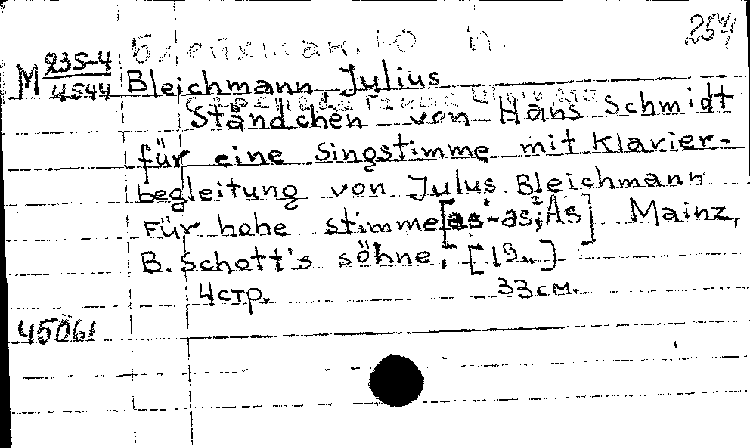 Блейхман, Ю И.
254
M 235-4
4544
Bleichmann, Julius
Ständchen von Hans Schmidt
für eine Singstimme mit Klavier-
begleitung von Julus Bleichmann
Für hohe stimme [as¹-as²; As] Mainz,
B. Schott's söhne, [19..]
4 стр. 33 см.
45061